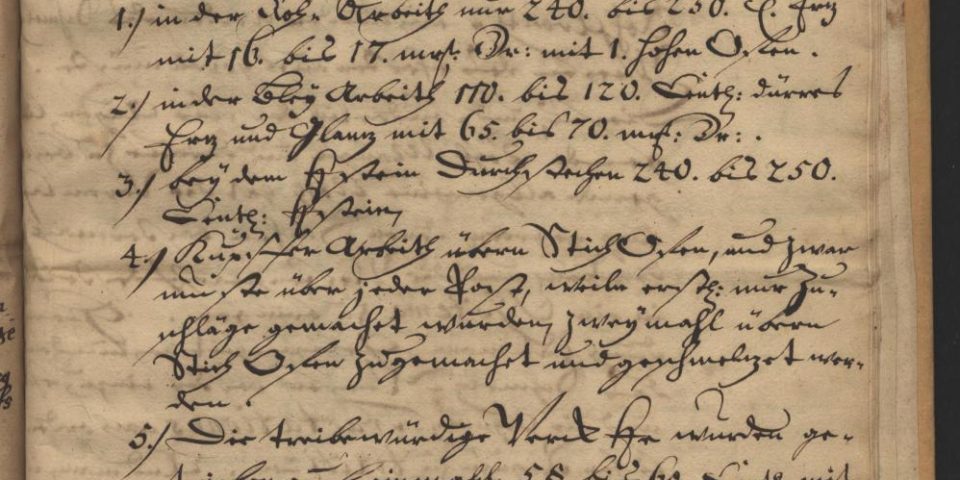 1.) in der Roh- Arbeith nur 240. bis 250. C. Ertz
mit 16. bis 17. mrk: Dr: mit 1. hohen Ofen.
2.) in der Bley Arbeith 110. bis 120. Centh: dürres
Ertz und Glantz mit 65. bis 70. mrk: Dr: .
3.) bey dem Stein Durchstechen 240. bis 250.
Centh: Stein,
4.) Kupffer Arbeith übern Stich Ofen, und zwar
muste über jeder Post, weiln erstl: nur Zu-
schläge gemachet wurden, zweymahl übern
Stich Ofen zugemachet und geschmeltzet wer-
den.
5.) Die treibewürdige Werck wurden ge-
58 bis 60. Centh mit